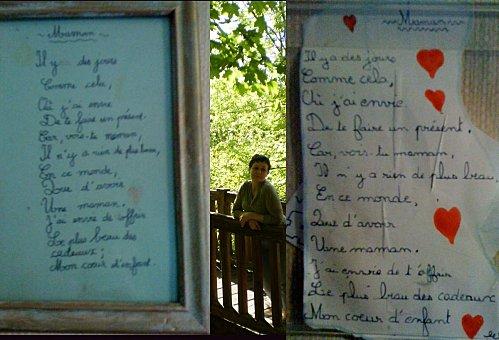 ~ Maman ~
Il y a des jours
Comme cela,
Où j'ai envie
De te faire un présent.
Car, vois-tu maman,
Il n'y a rien de plus beau,
En ce monde,
Que d'avoir
Une maman.
J'ai envie de t'offrir
Le plus beau des
cadeaux ;
Mon cœur d'enfant.
~ Maman ~
Il y a des jours
Comme cela,
Où j'ai envie
De te faire un présent.
Car, vois-tu maman,
Il n'y a rien de plus beau,
En ce monde,
Que d'avoir
Une maman.
J'ai envie de t'offrir
Le plus beau des cadeaux
Mon cœur d'enfant